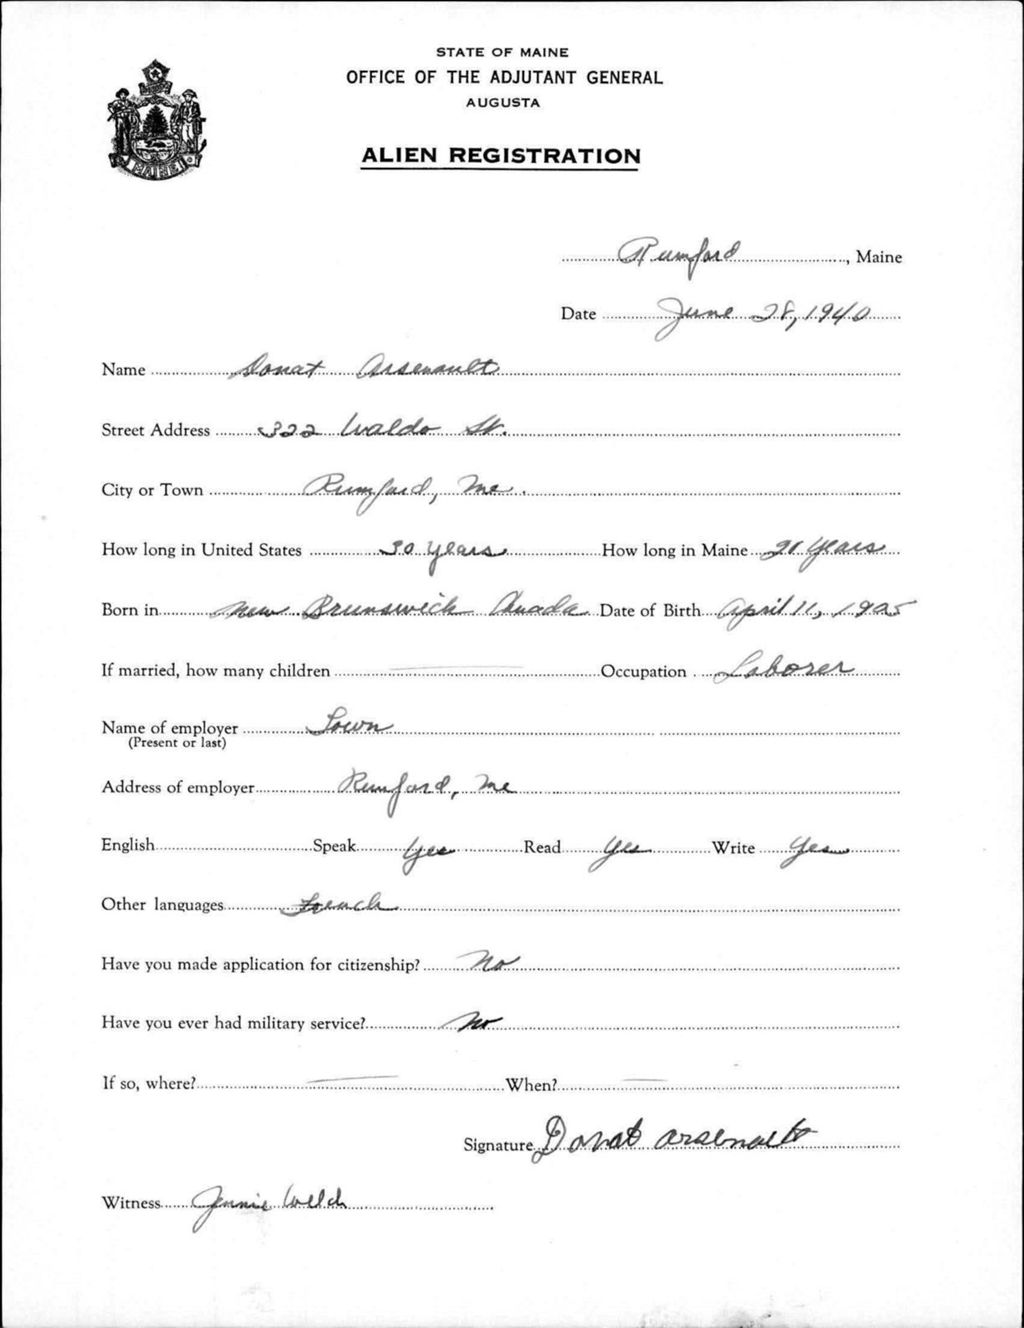 STATE OF MAINE
OFFICE OF THE ADJUTANT GENERAL
AUGUSTA
ALIEN REGISTRATION
MAINE
Rumford, Maine
Date June 28, 1940
Name Donat Arsenault
Street Address 322 Waldo St.
City or Town Rumford, Me.
How long in United States 30 years How long in Maine years
Born in New Brunswick Canada Date of Birth April 11, 1905
If married, how many children Occupation Laborer
Name of employer Town
(Present or last)
Address of employer Rumford, Me
English Speak Yes Read Yes Write Yes
Other languages French
Have you made application for citizenship? No
Have you ever had military service? No
If so, where? When?
Signature Donat Arsenault
Witness Jennie Welch